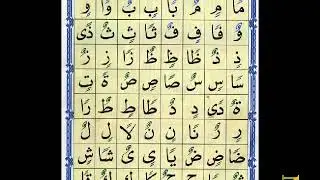 مًا مٍ مٌ بًا بٍ بٌ وًا وٍ
وٌ فًا فٍ فٌ ثًا ثٍ ثٌ ذًى
ذٍ ذٌ ظًا ظٍ ظٌ زًا زٍ زٌ
سًا سٍ سٌ صًا صٍ صٌ ةً تٍ
ةٌ دًى دٍ دٌ طًا طٍ طٌ رًا
رٍ رٌ نًا نٍ نٌ لًا لٍ لٌ
ضًا ضٍ ضٌ يًا يٍ ىٌ شًا شٍ